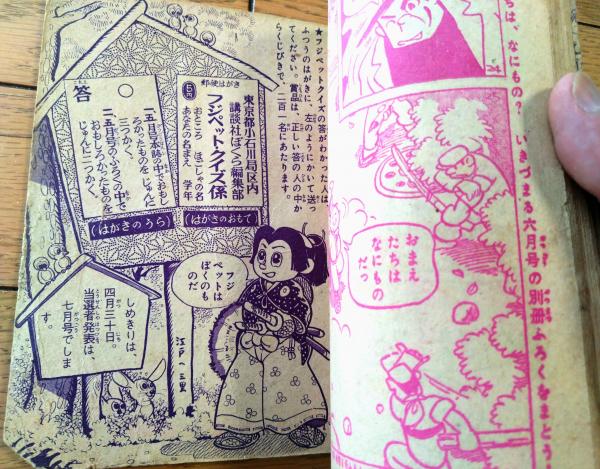 ★フジペットクイズの答がわかった人は、
ふつうのはがきに、左のようにかいて送っ
てください。賞品は、正しい答の人の中か
らくじびきで、二百一名にあたります。
郵便はがき
5円
東京都小石川局区内
講談社ぼくら編集部
フジペットクイズ係
おところ ほごしゃの名
あなたの名まえ 学年
(はがきのおもて)
答
○
一、五月号本誌の中でおもし
ろかったものを じゅんに
三つかく。
二、五月号のふろくの中で
おもしろかったものを
じゅんに二つかく。
(はがきのうら)
フジ
ペットは
ぼくのも
のだ
江戸へ三里
しめきりは、
四月三十日。
当選者発表は、
七月号でしま
す。
ちは、なにもの? いきづまる六月号の別冊ふろくをまとう
おまえ
たちは
なにもの
だっ